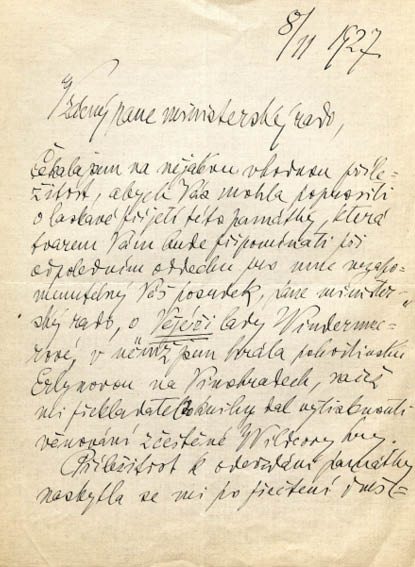 8/11 1927
Vzácný pane ministerský rado,
Čekala jsem na nějakou vhodnou příle=
žitost, abych Vás mohla poprositi
o laskavé přijetí této památky, která
tvarem Vám bude připomínati při
odpoledním oddechu pro mne nezapo=
menutelný Váš posudek, pane minister=
ský rado, o Vějíři lady Windermee=
rové, v němž jsem hrála pohostinsku
Erlynovou na Vinohradech, načež
mi překladatel knihy dal vytisknouti
věnování zčeštěné Wildeovy hry.
Příležitost k odevzdání památky
naskytla se mi po přečtení dneš=